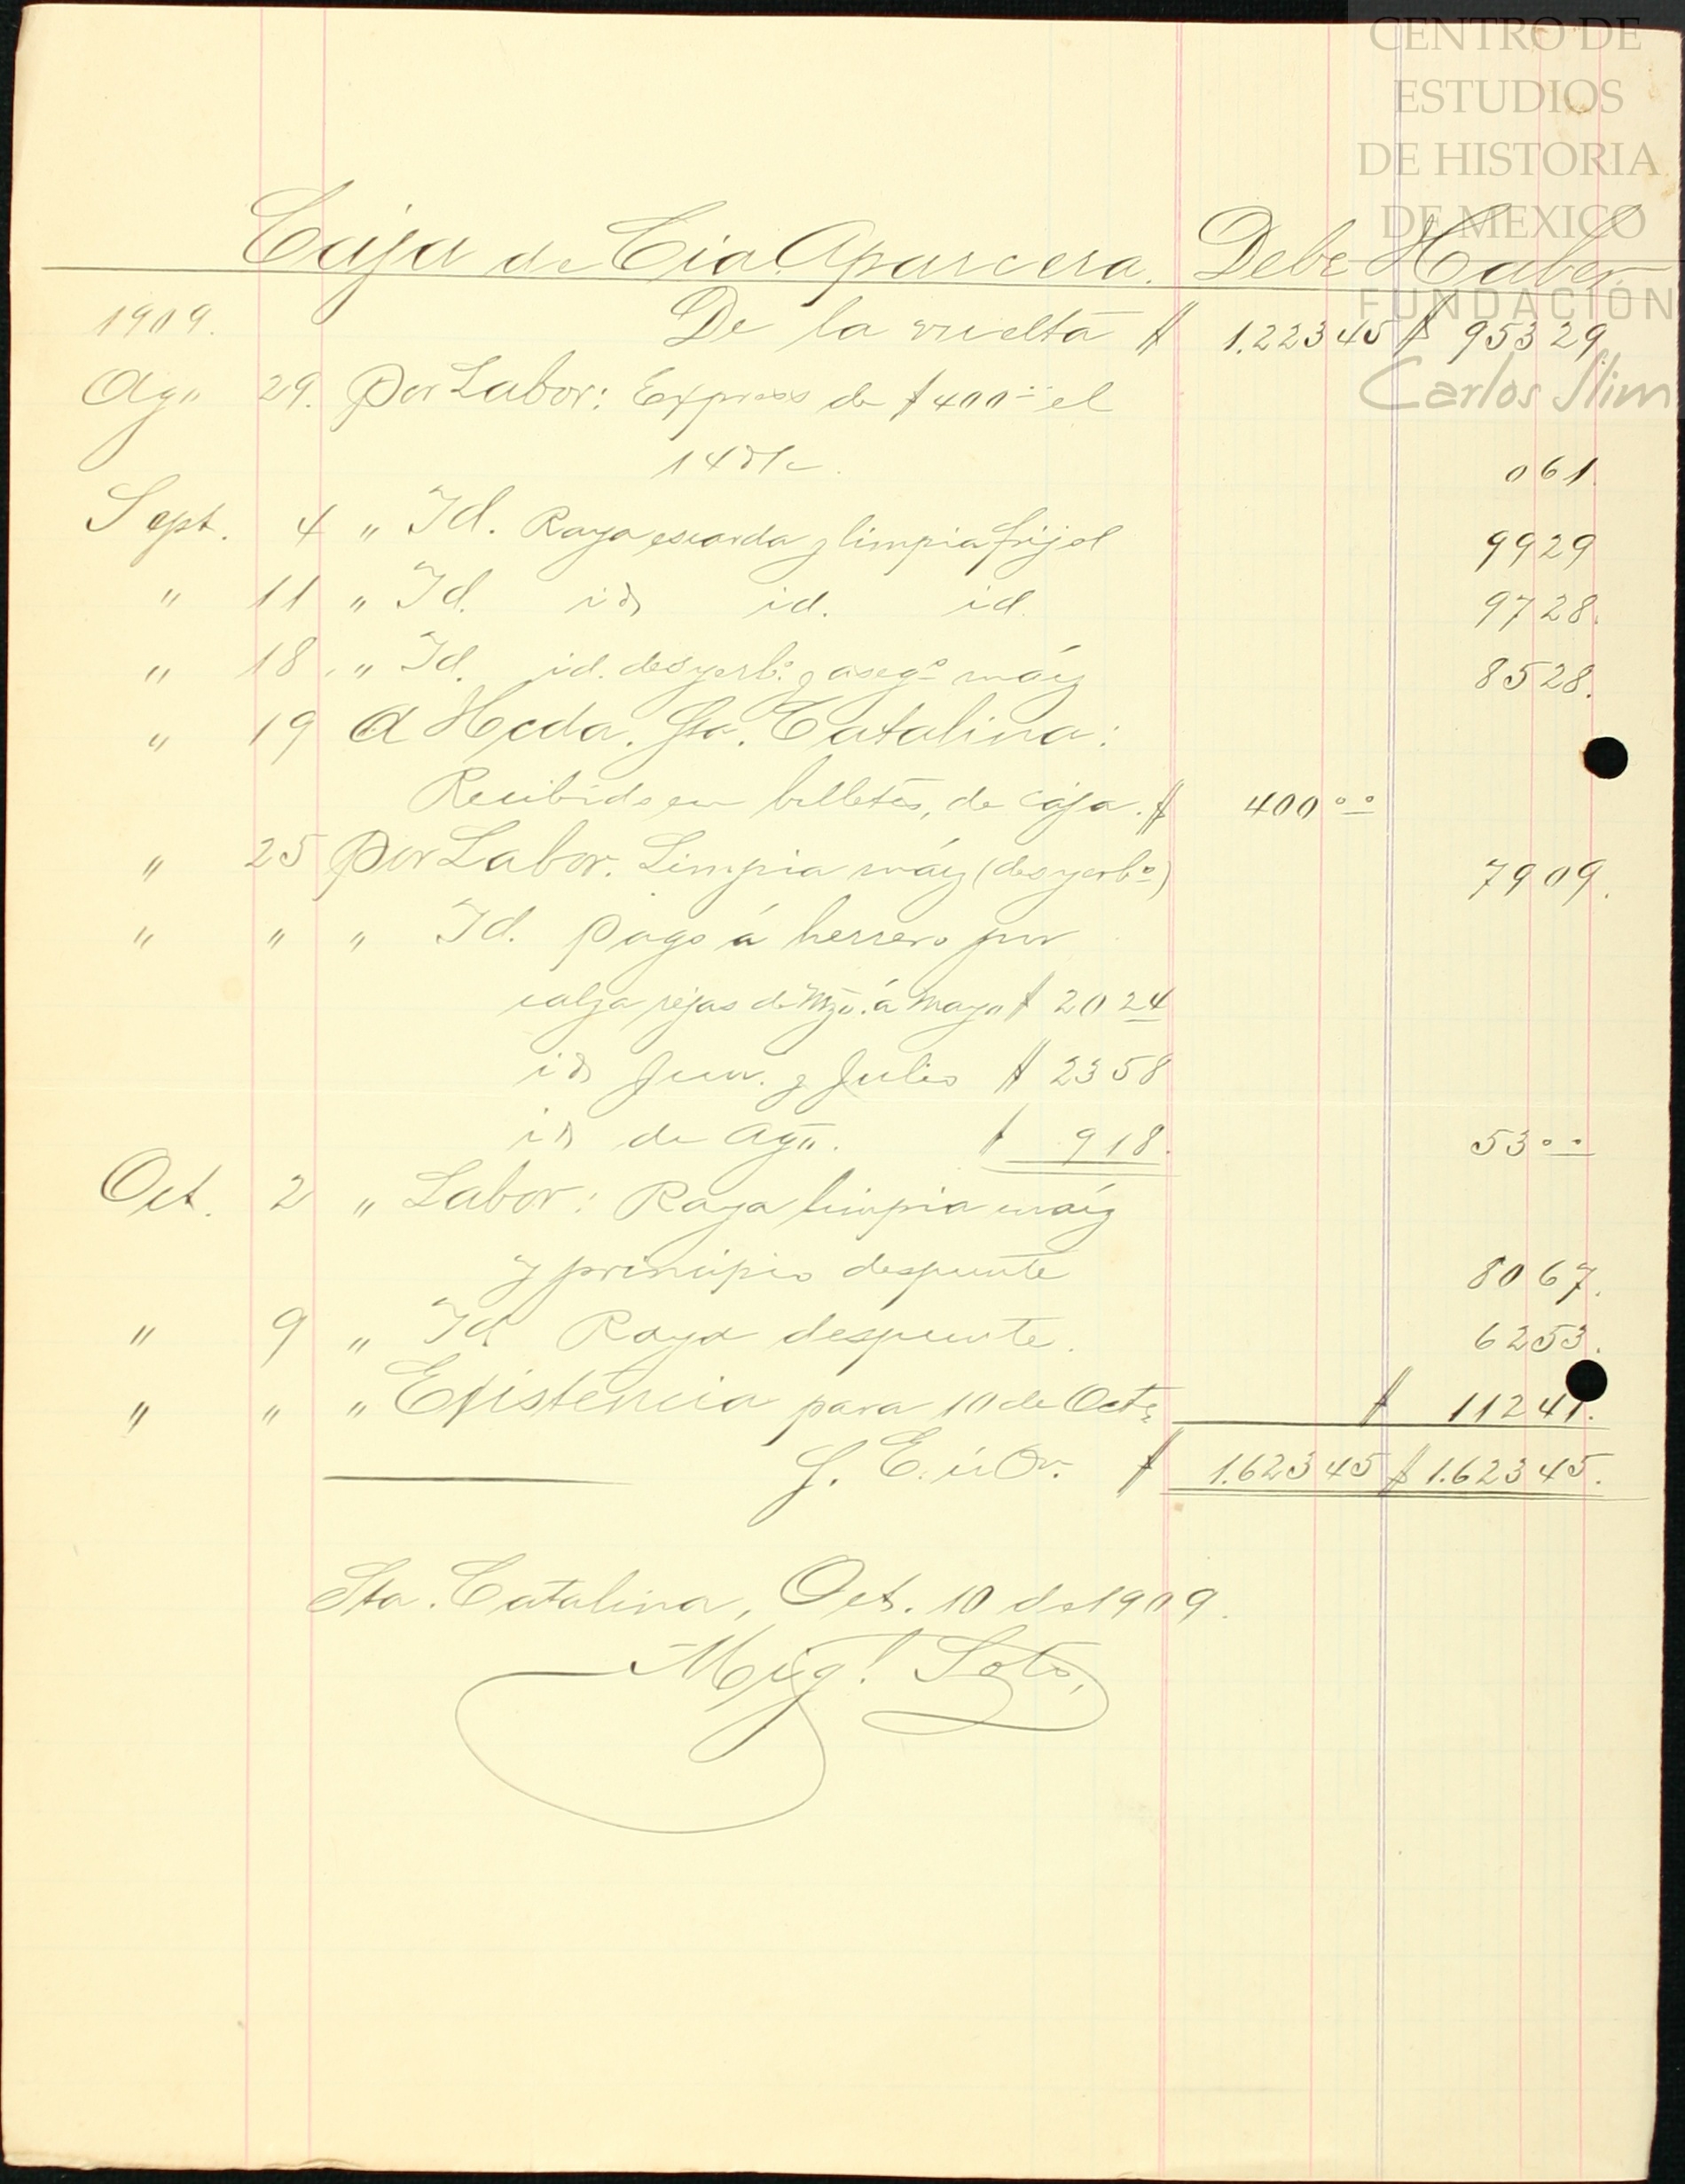 CENTRO DE
ESTUDIOS
DE HISTORIA
DE MEXICO
FUNDACIÓN
Carlos Slim
Caja de Cia. Aparcera. Debe Haber.
1909. De la vuelta $ 1.223 45 $ 953 29
Agº 29. Por Labor: Express de $400.. el
14 0 61.
Sept. 4 " Id. Raya escarda y limpia frijol 99 29
" 11 " Id. id id. id. 97 28.
" 18. " Id. id. desyerbº y asegº maíz 85 28.
" 19 A Hcda. Sta. Catalina:
Recibido en billetes, de caja. $ 400 00
" 25 Por Labor. Limpia maíz (desyerbº) 79 09.
" " " Id. pago á herrero por
calza rejas de Mzo. á Mayo $ 20 24
id Jun. y Julio $ 23 58
id de Agº. $ 9 18. 53 00
Oct. 2 " Labor: Raya limpia maíz
y principio despunte 80 67.
" 9 " Id Raya despunte. 62 53.
" " " Existencia para 10 de Octe $ 112 41.
S. E. ú O. $ 1.623 45 $ 1.623 45.
Sta. Catalina, Oct. 10 de 1909.
Migl. Soto,